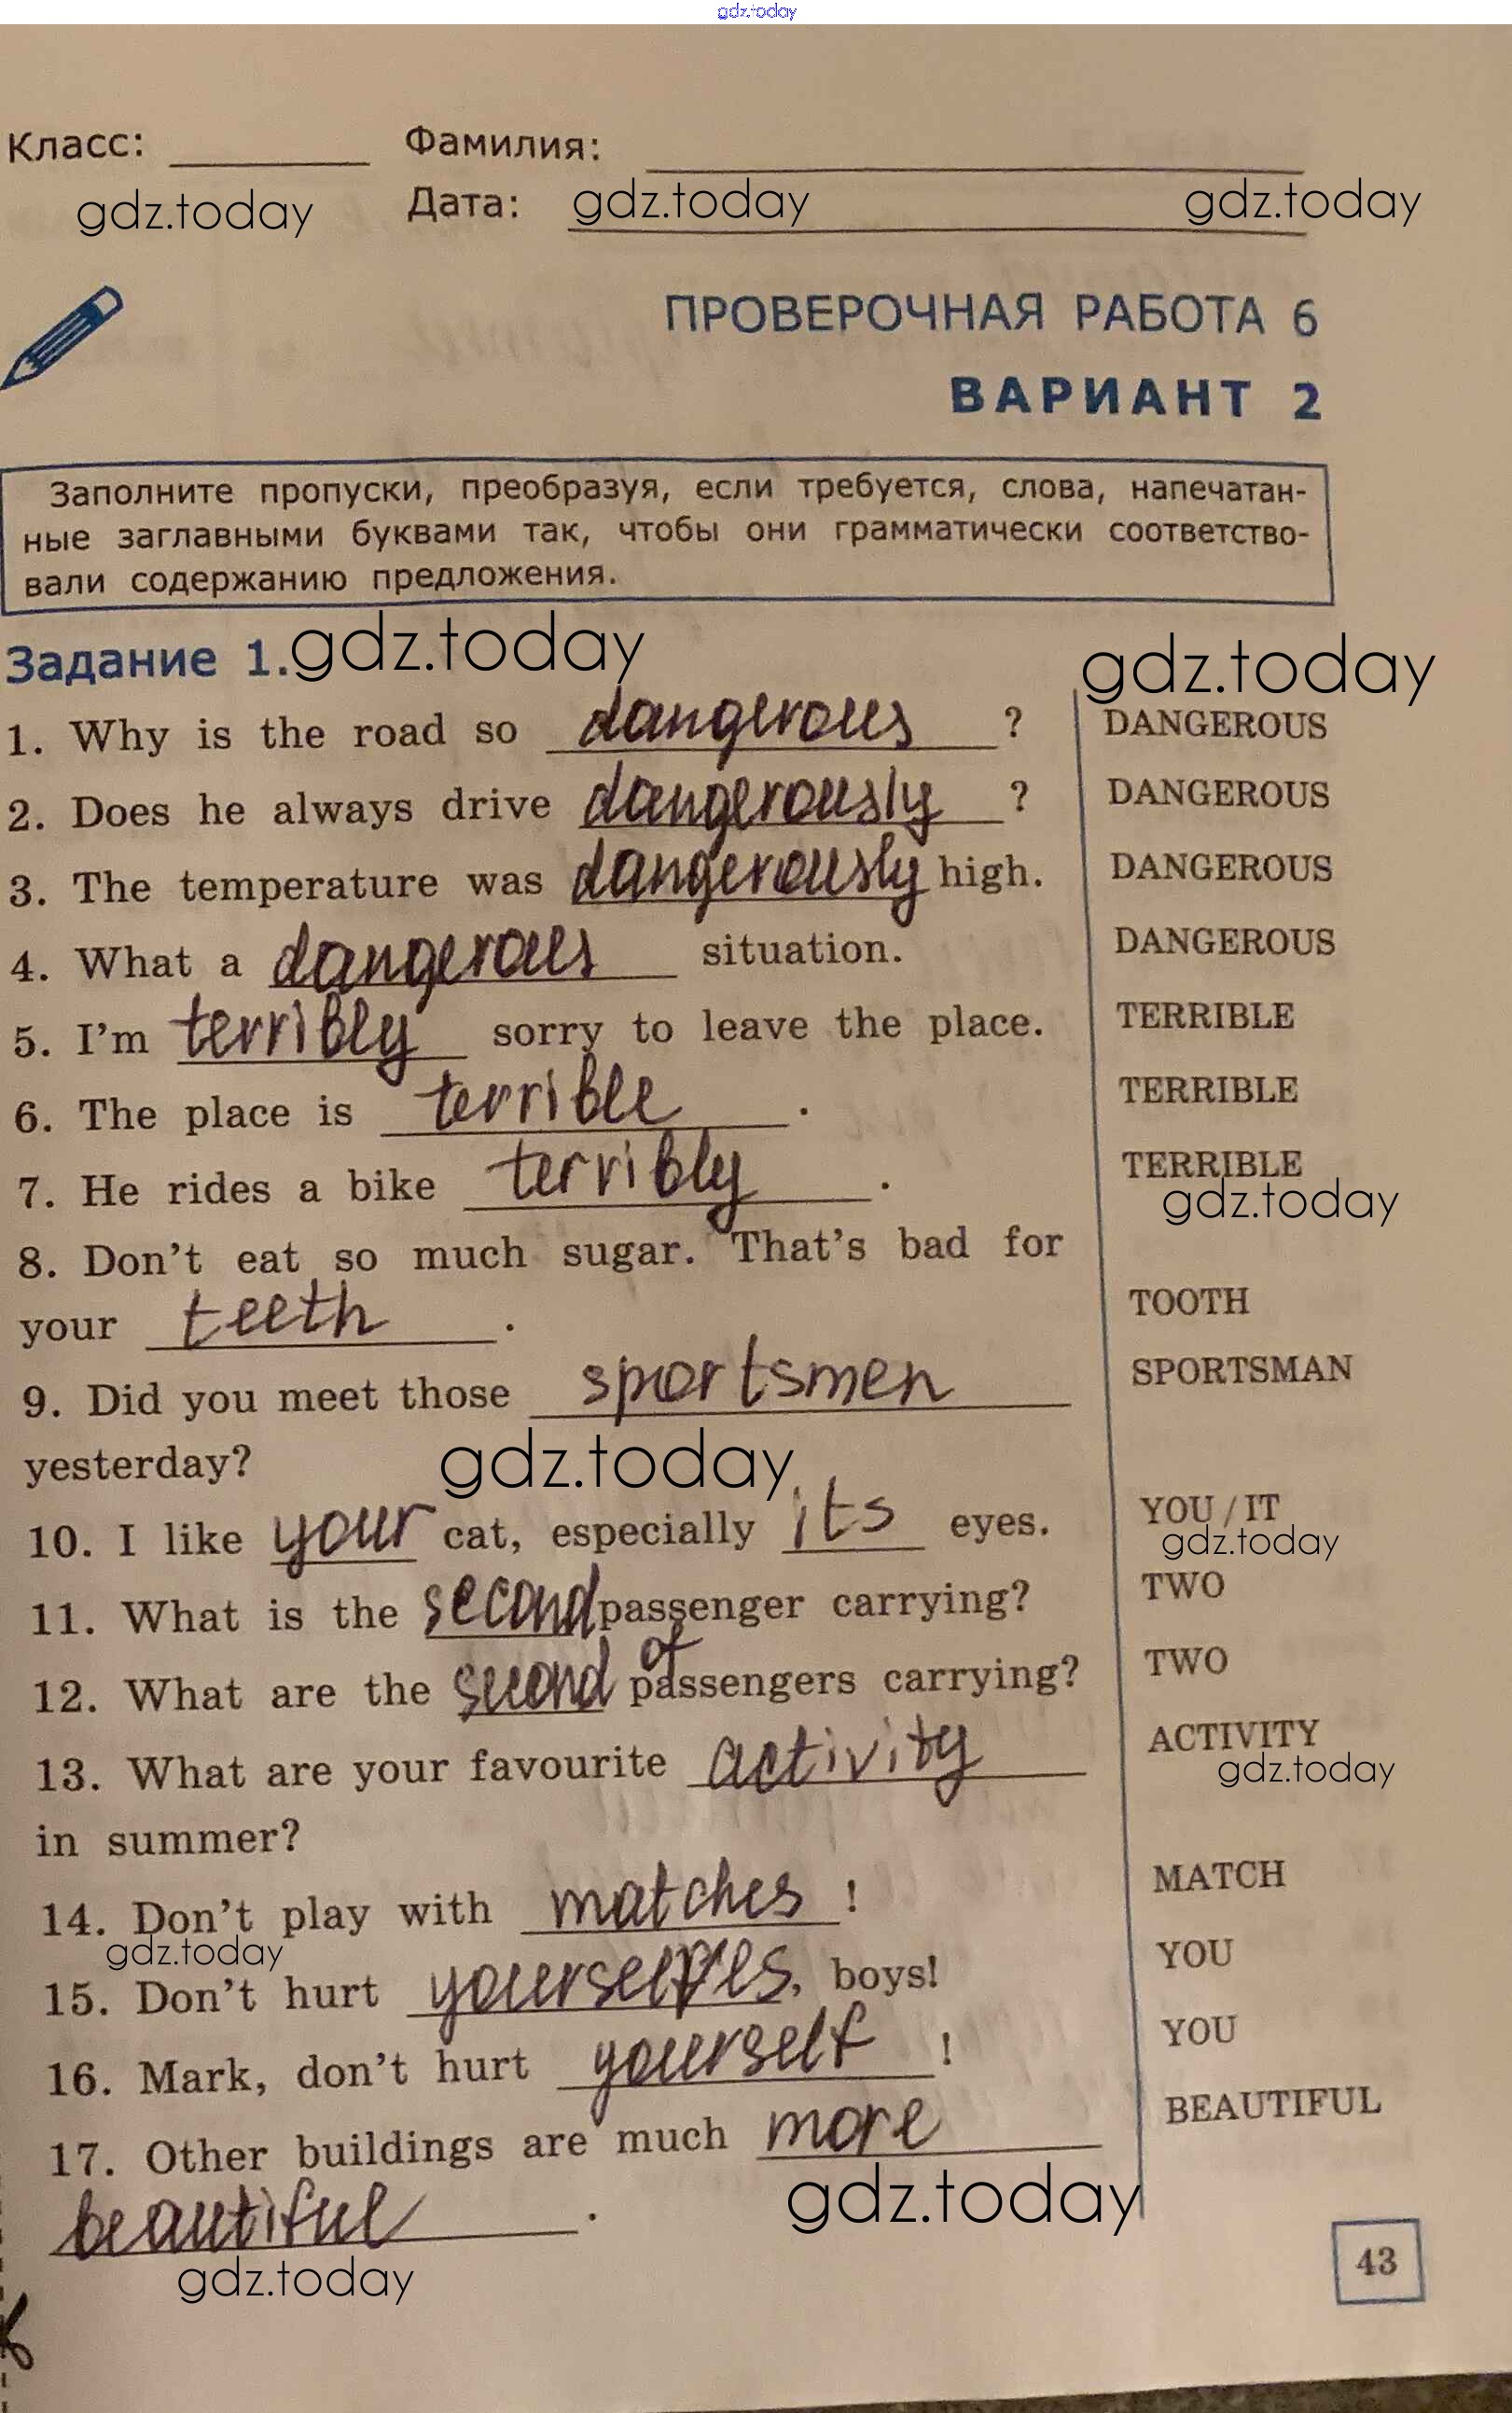 gdz.today
Класс: Фамилия:
gdz.today Дата: gdz.today gdz.today
ПРОВЕРОЧНАЯ РАБОТА 6
ВАРИАНТ 2
Заполните пропуски, преобразуя, если требуется, слова, напечатан-
ные заглавными буквами так, чтобы они грамматически соответство-
вали содержанию предложения.
Задание 1. gdz.today gdz.today
1. Why is the road so dangerous ? DANGEROUS
2. Does he always drive dangerously ? DANGEROUS
3. The temperature was dangerously high. DANGEROUS
4. What a dangerous situation. DANGEROUS
5. I'm terribly sorry to leave the place. TERRIBLE
6. The place is terrible . TERRIBLE
7. He rides a bike terribly . TERRIBLE
gdz.today
8. Don't eat so much sugar. That's bad for
your teeth . TOOTH
9. Did you meet those sportsmen SPORTSMAN
yesterday? gdz.today
10. I like your cat, especially its eyes. YOU / IT
gdz.today
11. What is the second passenger carrying? TWO
of
12. What are the second passengers carrying? TWO
13. What are your favourite activity ACTIVITY
gdz.today
in summer?
14. Don't play with matches ! MATCH
gdz.today
15. Don't hurt yourselves, boys! YOU
16. Mark, don't hurt yourself ! YOU
17. Other buildings are much more BEAUTIFUL
beautiful . gdz.today
gdz.today
43